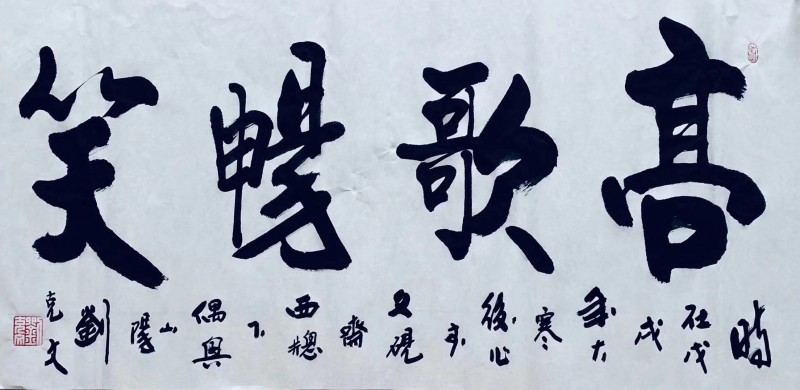 高歌暢笑
時在戊戌年大寒後於文硯齋西牕下偶興山陽劉克文